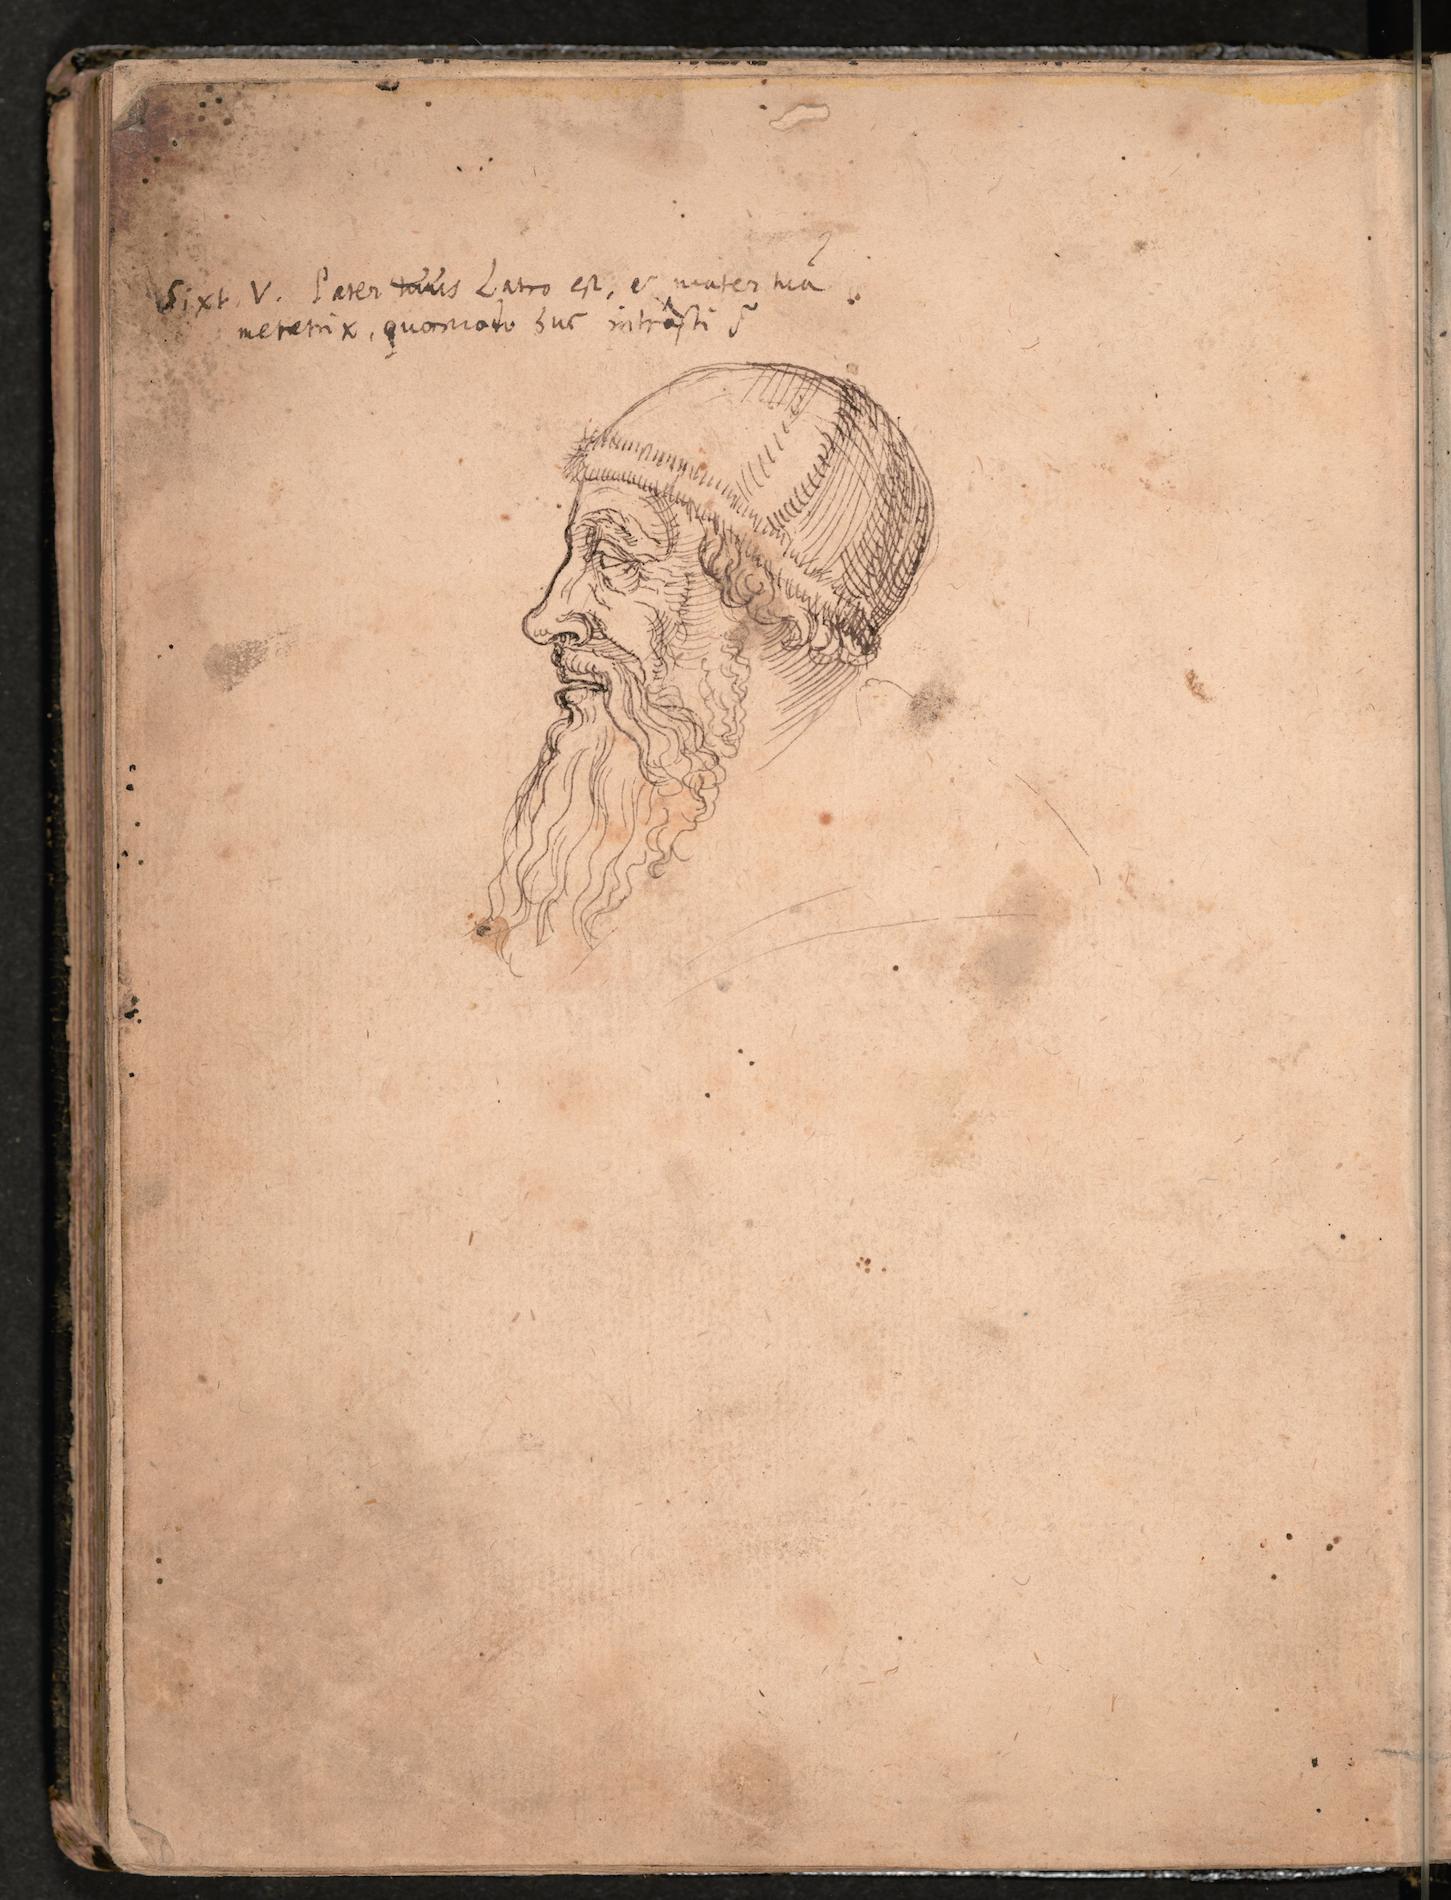 Sixt. V. Pater tuus Latro est, et mater tua
meretrix, quomodo huc intrasti?